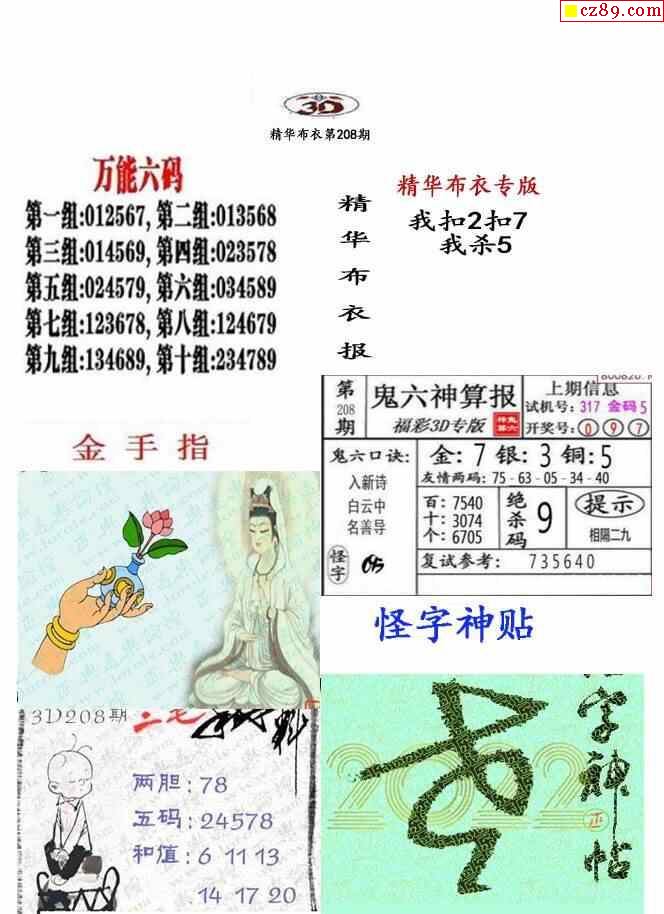 cz89.com
3D
精华布衣第208期
万能六码
第一组:012567, 第二组:013568
第三组:014569, 第四组:023578
第五组:024579, 第六组:034589
第七组:123678, 第八组:124679
第九组:134689, 第十组:234789
精华布衣报
精华布衣专版
我扣2扣7
我杀5
金手指
第208期
鬼六神算报
福彩3D专版
上期信息
试机号: 317 金码 5
开奖号: 0 9 7
鬼六口诀:
入新诗
白云中
名善导
怪字
金: 7 银: 3 铜: 5
友情两码: 75-63-05-34-40
百: 7540
十: 3074
个: 6705
绝杀码 9
提示
相隔二九
复试参考: 735640
怪字神贴
3D208期
两胆: 78
五码: 24578
和值: 6 11 13
14 17 20
2022
怪字神帖